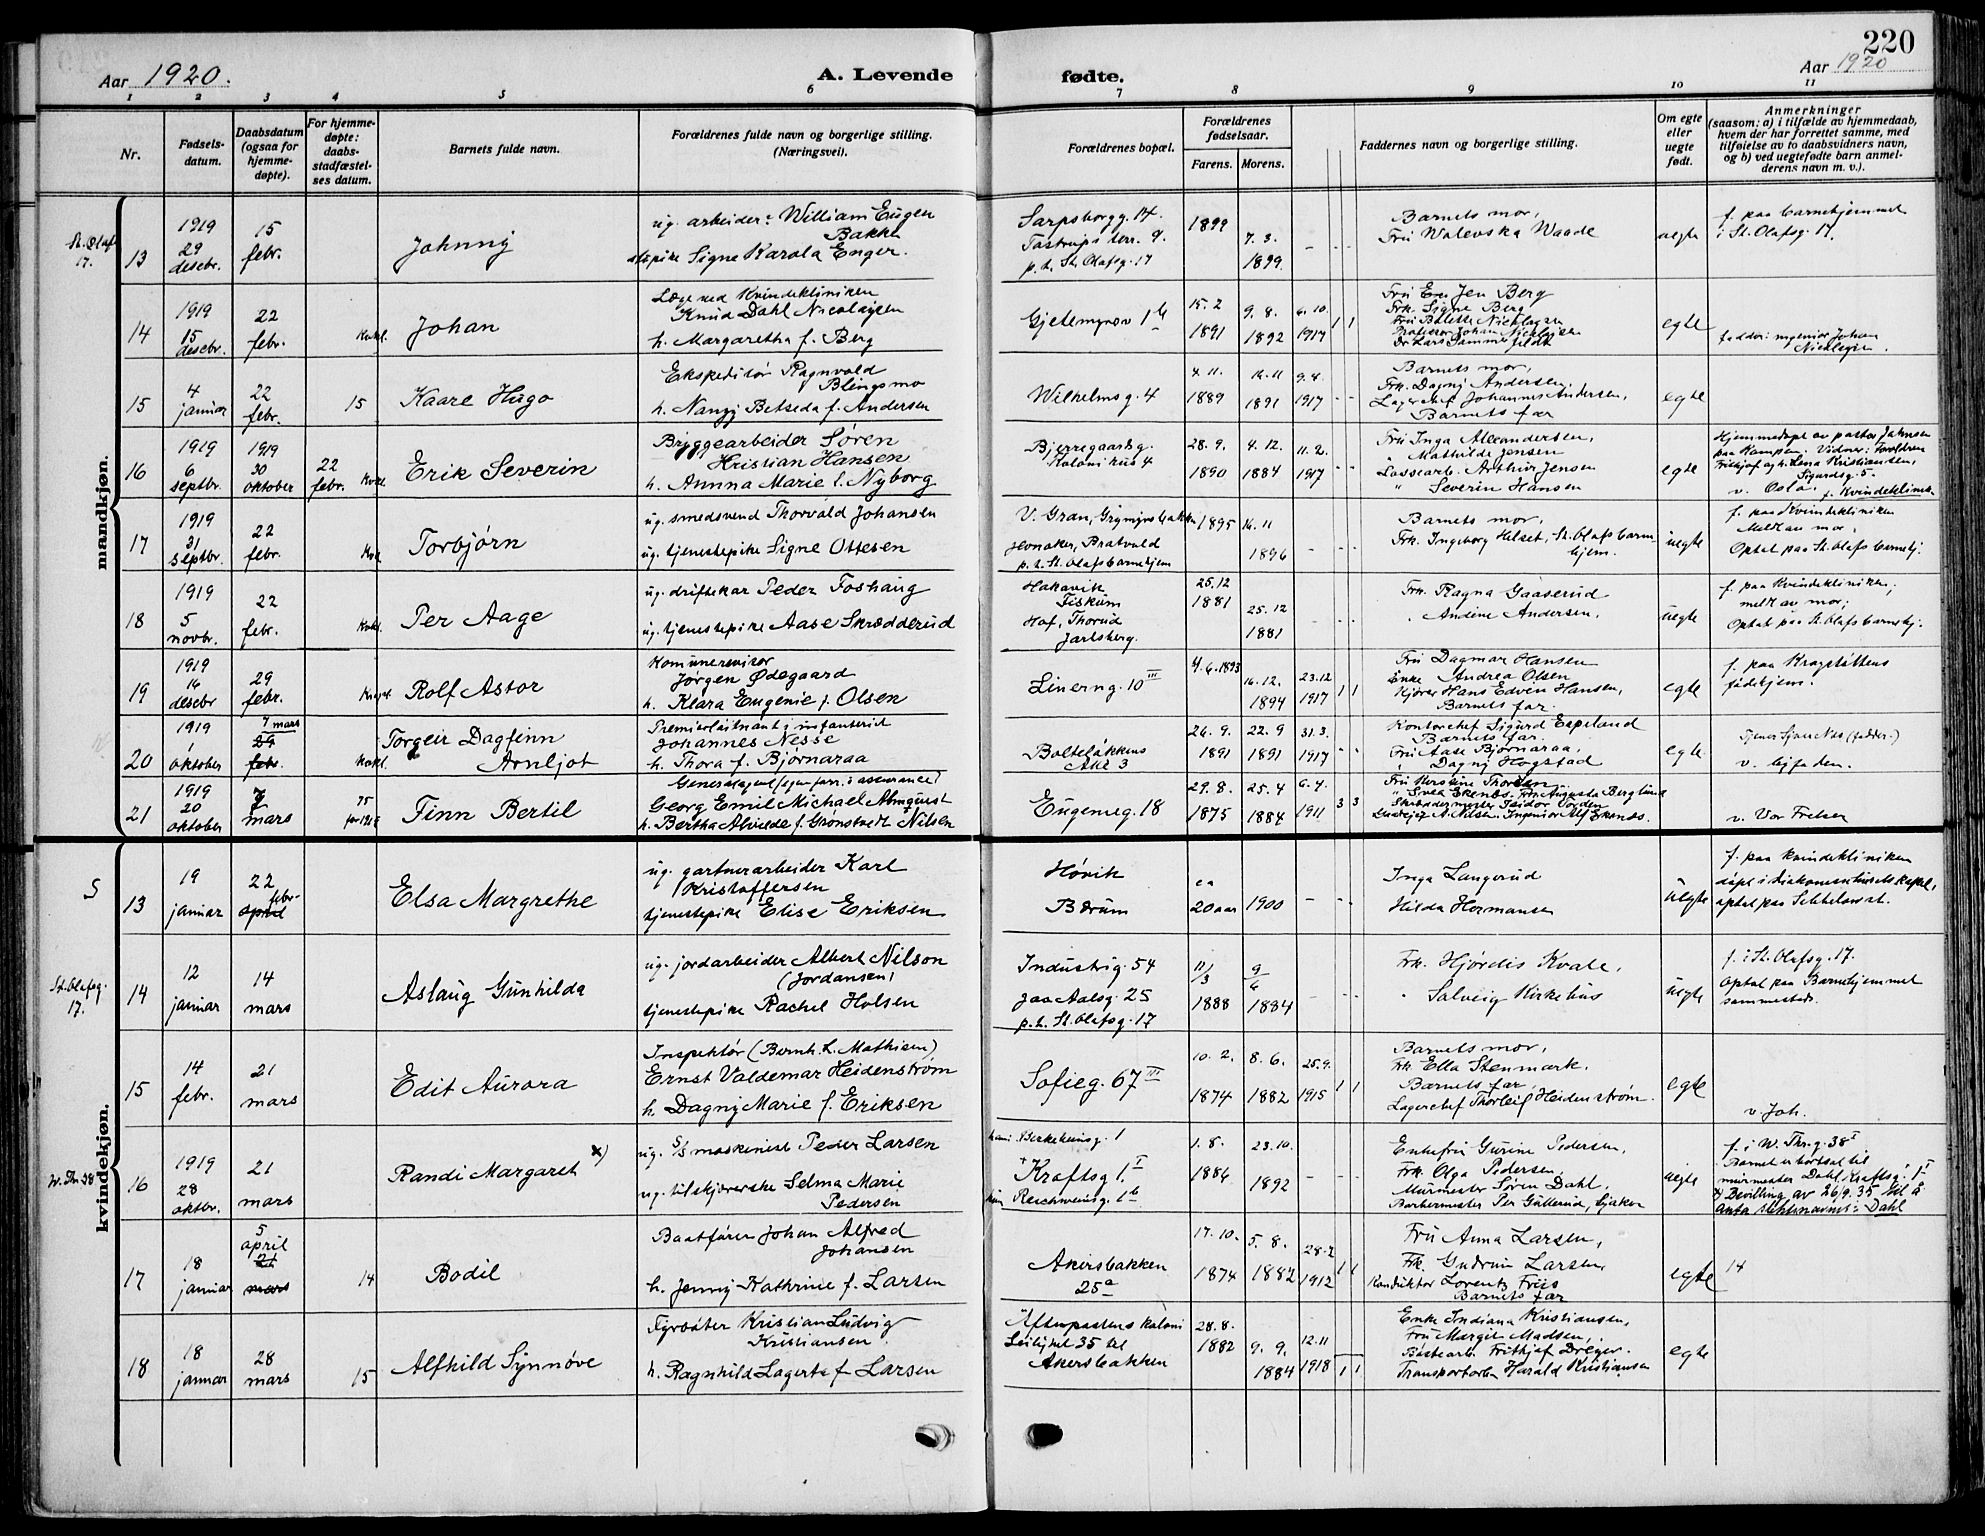 220
Aar 1920.
A. Levende
fødte.
Aar 1920
1 2 3 4 5 6 7 8 9 10 11
Nr.
Fødsels-
datum.
Daabsdatum
(ogsaa for
hjemme-
døpte).
For hjemme-
døpte:
daabs-
stadfæstel-
ses datum.
Barnets fulde navn.
Forældrenes fulde navn og borgerlige stilling.
(Næringsvei).
Forældrenes bopæl.
Forældrenes
fødselsaar.
Farens. Morens.
Faddernes navn og borgerlige stilling.
Om egte
eller
uegte
født.
Anmerkninger
(saasom: a) i tilfælde av hjemmedaab,
hvem der har forrettet samme, med
tilføielse av to daabsvidners navn,
og b) ved uegtefødte barn anmel-
derens navn m. v.).
mandkjøn.
St. Olafs
17.
13
1919
29
desebr.
15
febr.
Johnny
ug. arbeider: William Eugen
Bakke
Signe Karola Enger.
Sarpsborgg. 14.
Tostrups terr. 9.
p.t. St. Olafsg. 17
1899
7. 3.
1899.
Barnets mor,
Fru Walevska Waade
uegte
f. paa Barnehjemmet
i St. Olafsg. 17.
14
1919
15
desebr.
22
febr.
Johan
Læge ved Kvindekliniken
Knud Dahl Nicolaysen
h. Margaretha f. Berg
Gjetemyrsv 1b
15. 2
1891
9. 8.
1892
6. 10.
1917
1 1
Frk. Signe Berg
egte
fadder: ingeniør Johan
15
4
januar
22
febr.
15
Kaare Hugo
Ekspeditør Ragnvald
Blingsmo
h. Nanny Betseda f. Andersen
Wilhelmsg. 4
4. 11.
1889
16. 11
1891
9. 8.
1917
Barnets mor,
Frk. Dagny Andersen.
Lagerchef Johannes Andersen,
Barnets far
egte
16
1919
6
septbr.
1919
30
oktober
22
febr.
Erik Severin
Bryggearbeider Søren
Kristian Hansen
h. Annna Marie f. Nyborg
Bjerregaardsg.
28. 9.
1890
4. 12.
1884
11. 2.
1917
Fru Inga Alexandersen,
Mathilde Jensen
Lossearb. Arthur Jensen
" Severin Hansen
egte
Hjemmedøpt av pastor Johnsen
paa Kampen. Vidner: Foreldrene
Sigurdsg. 5.
v. Oslo. f. Kvindeklinik
17
1919
31
septbr
22
febr.
Torbjørn
ug. smedsvend Thorvald Johansen
ug. tjenestepike Signe Ottesen
p. t. St. Olafs barnehjem
1895
16. 11
1896
Barnets mor,
Frk. Ingeborg Helset, St. Olafs barne-
hjem.
uegte
f. paa Kvindekliniken
Meldt av mor.
Optat paa St. Olafs barnehj.
18
1919
5
novbr.
22
febr.
Per Aage
ug. driftskar Peder Foshaug
ug. tjenestepike Aase Skrædderud
Hakavik
Fiskum
Hof, Thorud
Jarlsberg.
25. 12
1881
25. 12
1881
Frk. Ragna Gaaserud
" Andine Andersen.
uegte
f. paa Kvindekliniken;
meldt av mor;
Optat paa St. Olafs barnehj.
19
1919
16
desebr
29
febr.
Rolf Astor
Komunerevisor
Jørgen Ødegaard
h. Klara Eugenie f. Olsen
Linerng. 10 III
4. 6. 1893
16. 12.
1894
23. 12
1917
1 1
Fru Dagmar Hansen
Enke Andrea Olsen
Kjører Hans Edven Hansen,
Barnets far.
egte
f. paa Kragstøttens
fødehjem.
20
1919
1
oktober
7 mars
29
febr.
Torgeir Dagfinn
Arnljot
Premierløitnant i infanteriet
Johannes Nesse
h. Thora f. Bjørnaraa
Bolteløkkens
Alle 3
26. 9.
1891
22. 9
1891
31. 3.
1917
Kontorchef Sigurd Espeland
Barnets far.
Fru Aase Bjørnaraa,
Dagny Hogstad
egte
21
1919
20
oktober
7
mars
Finn Bertil
Georg Emil Michael Almquist
h. Bertha Alvilde f. Grønstvedt Nilsen
Eugenieg. 18
29. 8.
1875
25. 4
1884
6. 4.
1911
3 3
v. Vor Frelser
kvindekjøn.
S
13
19
januar
22
febr.
april
Elsa Margrethe
ug. gartnerarbeider Karl
Kristoffersen
tjenestepike Elise Eriksen
Høvik
Bærum
ca
20 aar
1900
Inga Langerud
Hilda Hermansen
uegte
f. paa kvindekliniken
døpt i Diakonissehusets kapel,
14
St. Olafsg.
17.
12
januar
14
mars
Aslaug Gunhilda
ug. jordarbeider Albert Nilson
(Jordansen)
tjenestepike Rachel Holsen
Industrig. 54
Jaa Aalsg. 25
p. t. St. Olafsg. 17
11/3
1888
9/6
1884
Frk. Hjørdis Kvale,
" Solveig Kirkehus
uegte
f. i St. Olafsg. 17.
optat paa Barnehjemmet
sammesteds.
15
14
febr.
21
mars
Edit Aurora
Inspektør (Bernh. L. Mathisen)
Ernst Valdemar Heidenstrøm
h. Dagny Marie f. Eriksen
Sofieg. 67 III
10. 2.
1874
8. 6.
1882
25. 9.
1915
1 1
Barnets mor,
Frk Ella Stenmark.
Barnets far
Lagerchef Thorleif Heidenstrøm.
egte
v. Joh.
W. Thr. 38
16
1919
28
oktbr.
21
mars
Randi Margaret x)
ug. S/S maskinist Peder Larsen
ug. tilskjærerske Selma Marie
Pedersen
Birkelundsg. 1
Kraftsg. 1 I
Reichweinsg. 1b
1. 8.
1886
23. 10.
1892
Enkefru Gurine Pedersen,
Frk. Olga Pedersen,
Murmester Søren Dahl,
Barbermester Per Gullerud, Ljaken
uegte
f. i W. Thr. g. 38 I
Barnet er bortsat til
murmester Dahl, Kraftsg. 1 I
x) Bevilling av 26/9. 35 til å
anta slektsnavnet: Dahl
17
18
januar
5
april
21
mars
14
Bodil
Baatfører Johan Alfred
Johansen
h. Jenny Kathrine f. Larsen
Akersbakken
25 a
17. 10.
1874
5. 8.
1882
28. 2
1912
1 1
Fru Anna Larsen,
Frk. Gudrun Larsen,
Konduktør Lorentz Friis
Barnets far
egte
14
18
18
januar
28
mars
15
Alfhild Synnøve
Fyrbøter Kristian Ludvig
Kristiansen
h. Ragnhild Lagerta f. Larsen
Aftenpostens koloni
Akersbakken
28. 8.
1882
9. 9.
1884
12. 11
1918
1 1
Enke Indiana Kristiansen,
Fru Margit Madsen,
Bøttearb. Frithjof Dreyer.
Transportarb. Harald Kristiansen
egte